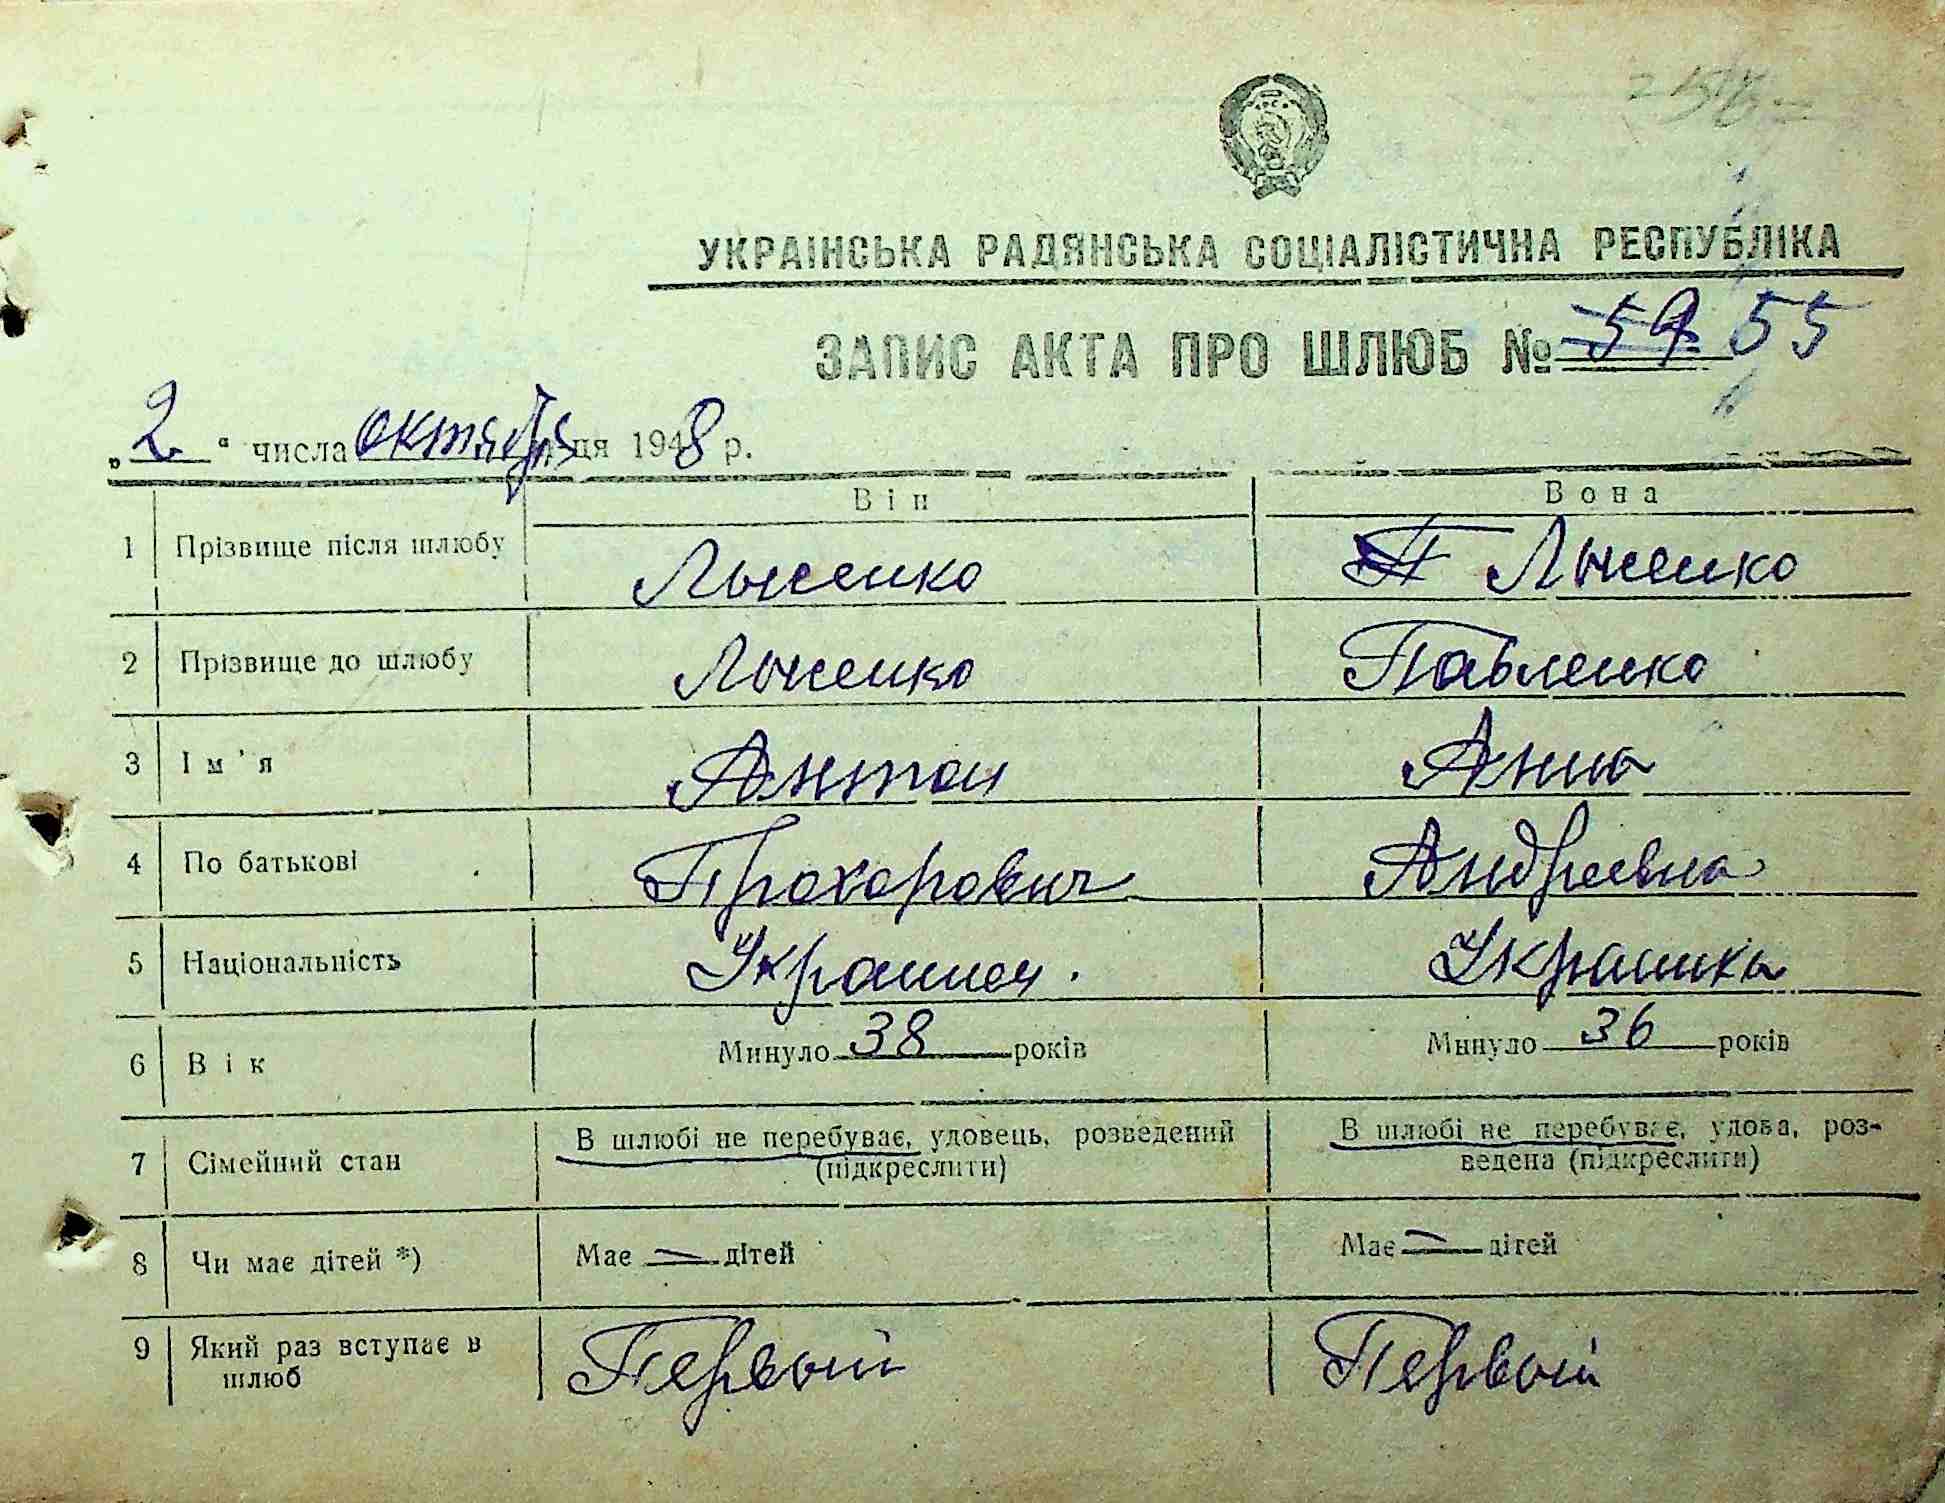 УКРАЇНСЬКА РАДЯНСЬКА СОЦІАЛІСТИЧНА РЕСПУБЛІКА
ЗАПИС АКТА ПРО ШЛЮБ № 59 55
„2“ числа октября ця 1948 р.
Він Вона
1 Прізвище після шлюбу Лысенко П Лысенко
2 Прізвище до шлюбу Лысенко Павленко
3 Ім'я Антон Анна
4 По батькові Прохорович Андреевна
5 Національність Украинец. Украинка
6 Вік Минуло 38 років Минуло 36 років
7 Сімейний стан В шлюбі не перебуває, удовець, розведений В шлюбі не перебуває, удова, роз-
(підкреслити) ведена (підкреслити)
8 Чи має дітей *) Має — дітей Має — дітей
9 Який раз вступає в Первый Первый
шлюб